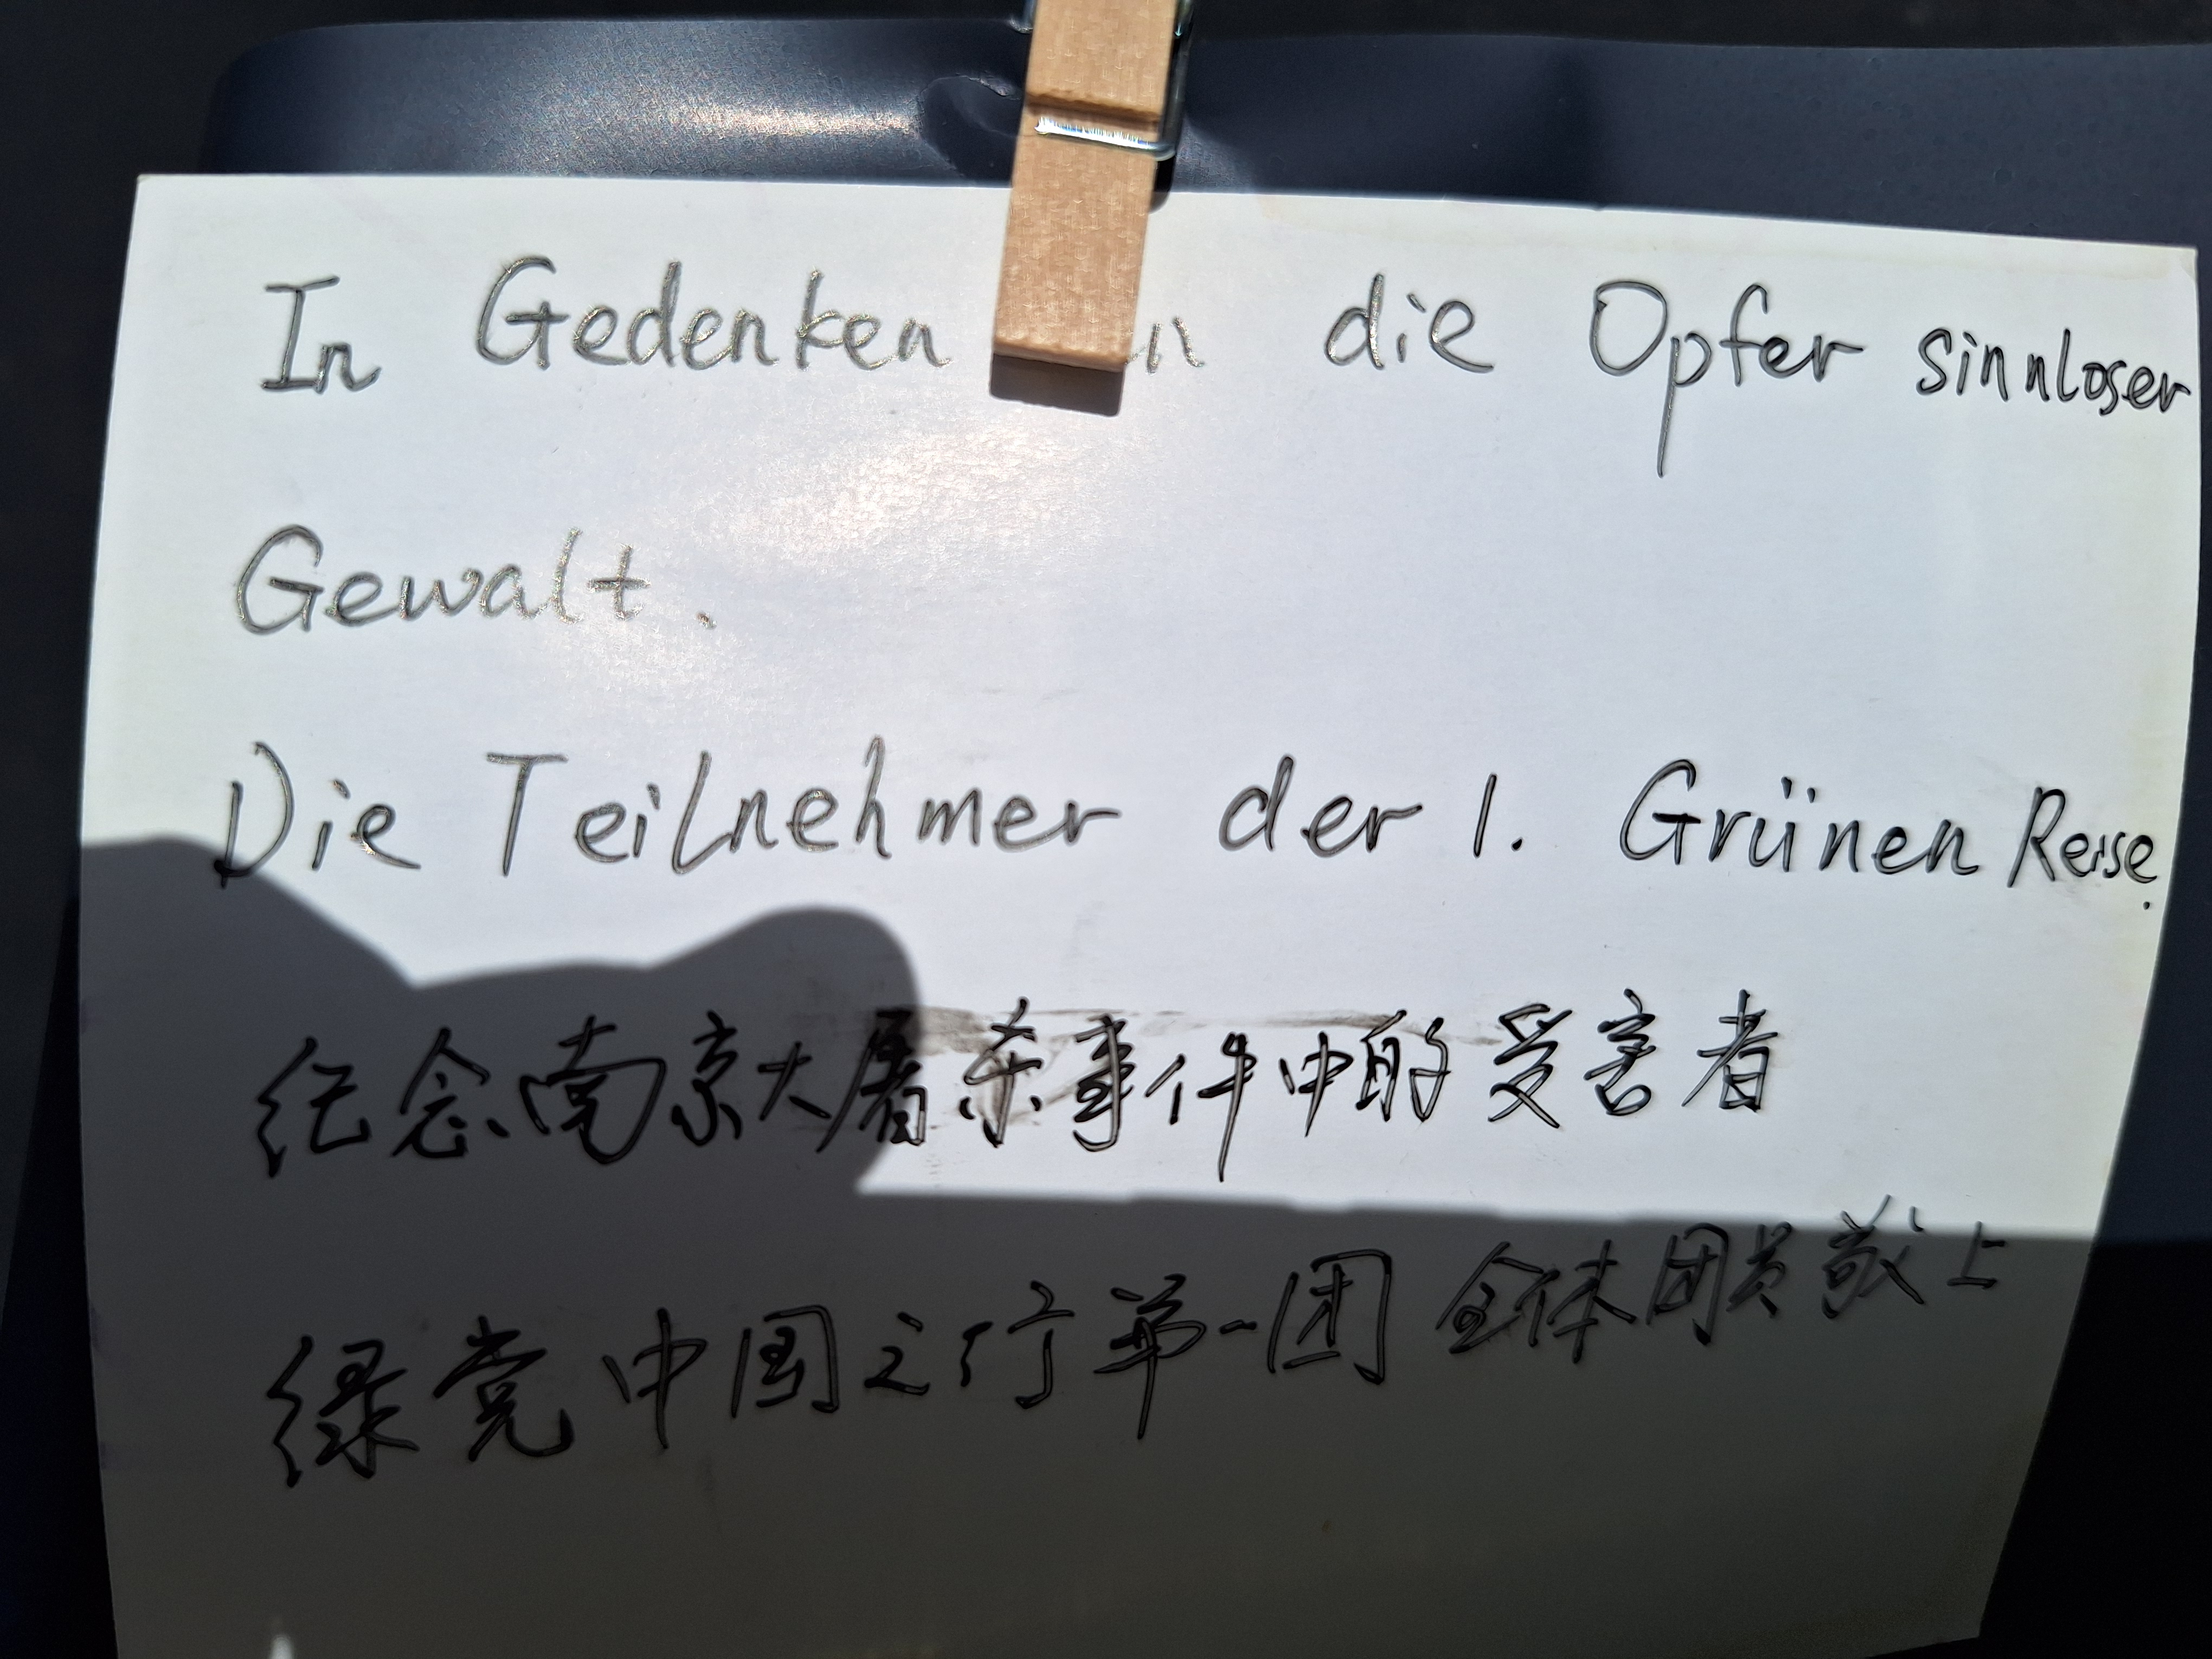 In Gedenken an die Opfer sinnloser
Gewalt.
Die Teilnehmer der 1. Grünen Reise.
纪念南京大屠杀事件中的受害者
绿党中国之行第一团 全体团员敬上